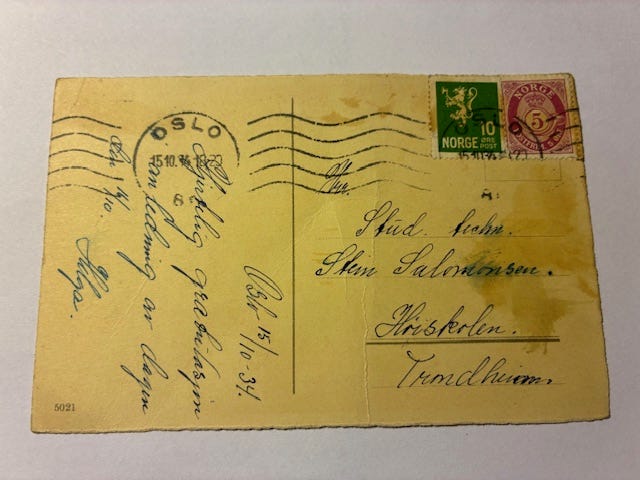 OSLO
15.10.34
Oslo 15/10-34.
Hjertelig gratulasjon
anledning av dagen
Den 16/10
Helga.
5021
10 ØRE
NORGE POST
NORGE
5
OSLO
15.10.34
Hr.
Stud. techn.
Stein Salomonsen.
Høiskolen.
Trondheim.